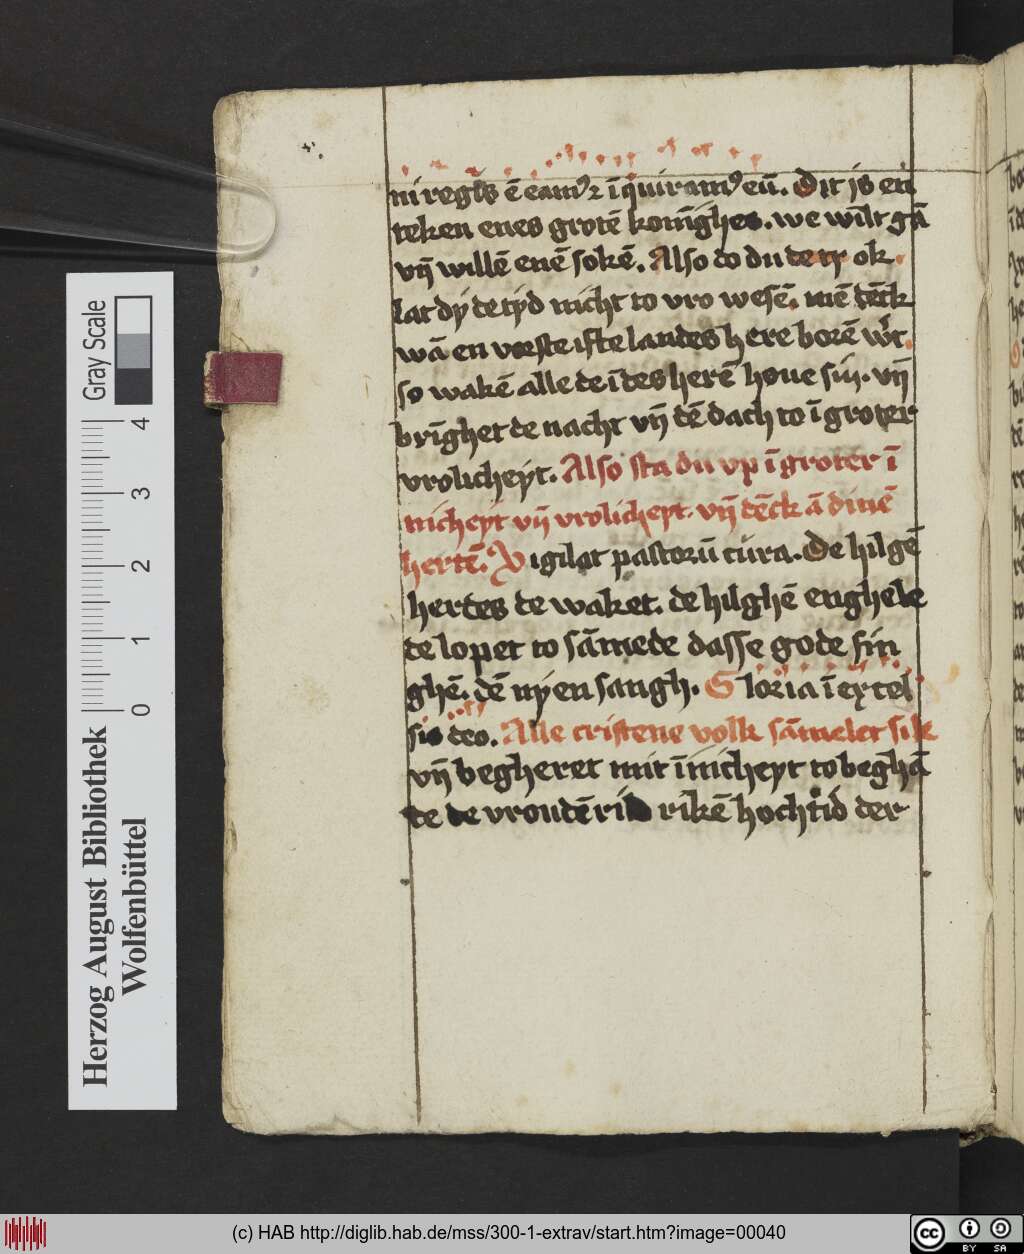 ni regis ē eamꝰ ⁊ īquiramꝰ eū. Dit is en
teken enes grotē konīghes. we wilt gā
vn̄ willē enē sokē. Also do du
lat dy de tyd nicht to vro wesē. mē dēck
wā en vorste ifte landes here borē wert.
so wakē alle de ī des herē houe sin. vn̄
brīghet de nacht vn̄ dē dach to ī groter
vrolicheyt. Also sta du vp ī groter ī
nicheyt vn̄ vrolicheyt. vn̄ dēck ā dinē
hertē. Vigilat pastorū cura. De hilgē
herdes de waket. de hilghē enghele
de lopet to sāmede dasse gode sin
ghē. dē nyen sangh. Gloria ī excel
sis deo. Alle cristene volk sāmelet sik
vn̄ begheret mit īnicheyt to beghā
de de vroudē rikē hochtid der
Herzog August Bibliothek
Wolfenbüttel
Gray Scale
0 1 2 3 4
(c) HAB http://diglib.hab.de/mss/300-1-extrav/start.htm?image=00040
cc BY SA